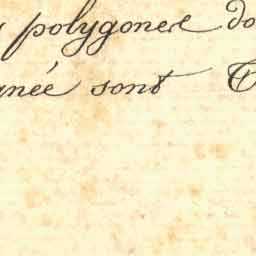 polygones do
gnée sont